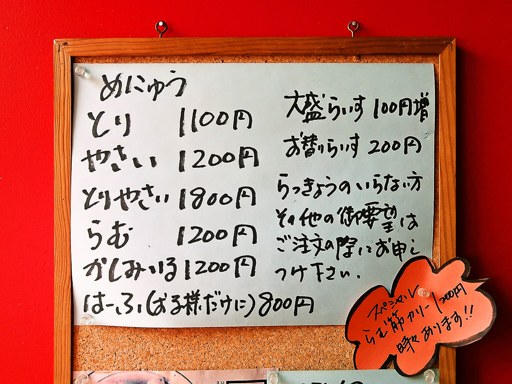 めにゅう
とり 1100円
やさい 1200円
とりやさい 1800円
らむ 1200円
かしみーる 1200円
はーふ(お子様だけに) 800円
大盛らいす 100円増
お替りらいす 200円
らっきょうのいらない方
その他の御要望は
ご注文の際にお申し
つけ下さい.
スペシャル
らむ筋カリー 1200円
時々あります!!